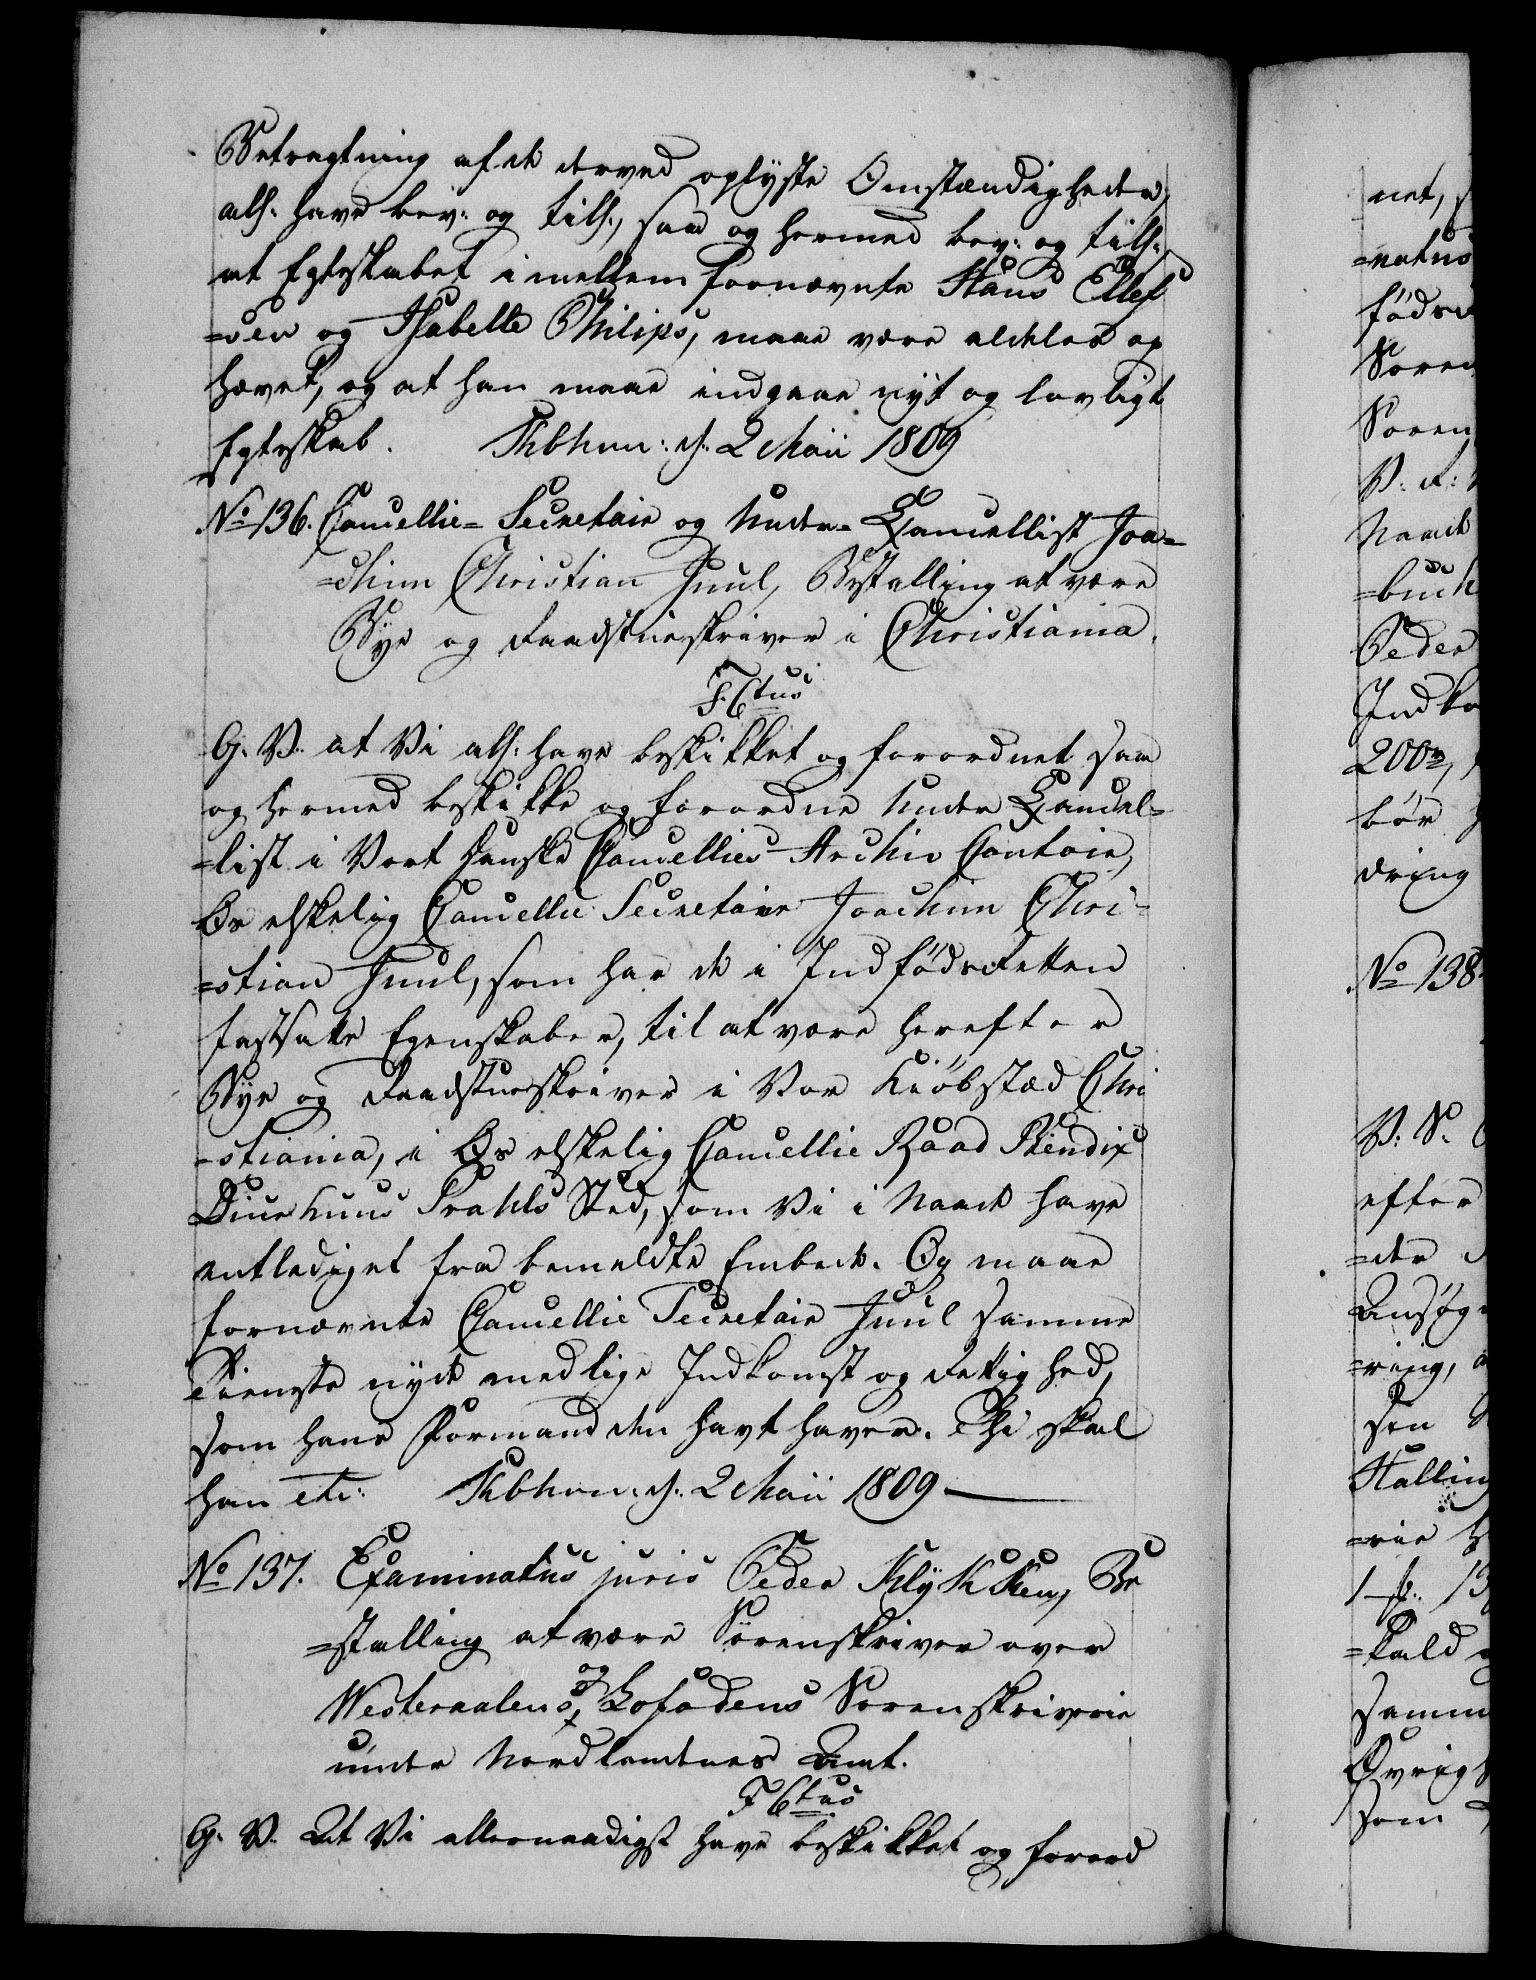 Betragtning af de derved oplyste Omstændigheder,
alls: have bev: og till:, saa og hermed bev: og till:
at Egteskabet imellem fornævnte Hans Ellef
=sen og Isabelle Philips, maae være aldeles op
hævet, og at han maae indgaae nyt og lovligt
Egteskab. Kbhvn: d. 2 Maii 1809
No 136. Cancellie= Secretair og Under= Cancellist Joa=
=chim Christian Juul, Bestalling at være
Bye og Raadstueskriver i Christiania.
F. 6tus
G. V. at Vi alls: have beskikket og forordnet saa
og hermed beskikke og forordne Under Cancel=
=list i Vort danske Cancellies Archiv Contoir,
Os elskelig Cancellie Secretair Joachim Chri=
=stian Juul, som har de i Indfødsretten
fastsatte Egenskaber, til at være herefter
Bye og Raadstueskriver i Vor Kiøbstæd Chri
=stiania, i Os elskelig Cancellie Raad Bendix
Diuehuus Prahls Sted, som Vi i Naade have
entlediget fra bemeldte Embede. Og maae
fornævnte Cancellie Secretair Juul samme
Tieneste nyde med lige Indkomst og Rettighed,
som hans Formand den havt haver. Thi skal
han etc: Kbhvn: d. 2 Maii 1809
No 137. Examinatus juris Peder Klykken, Be
=stalling at være Sorenskriver over
Westeraalens og Lofodens Sorenskriverie
under Nordlandenes Amt.
F 6tus
G. V. At Vi allernaadigst have beskikket og forord
net, s
=natus
føds
Soren
Soren
V. d:
Naade
=buch
Peder
Indko
200
bør
dring
No 138
V. S.
efter
=der
Ansøg
=ring,
sen
Halling
=rie
1 13
=kald
samm
Øvrig
som